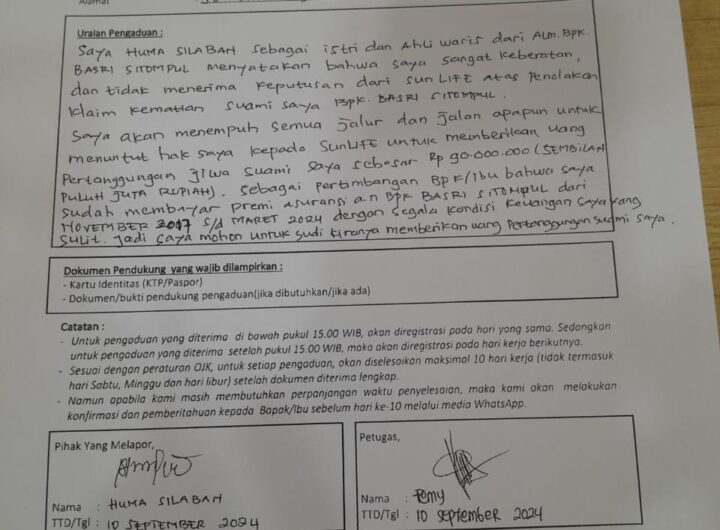 Alamat
Uraian Pengaduan :
Saya HUMA SILABAN sebagai istri dan Ahli waris dari Alm. Bpk.
BASRI SITOMPUL menyatakan bahwa saya sangat keberatan,
dan tidak menerima keputusan dari SUN LIFE atas Penolakan
Klaim kematian Suami saya Bpk. BASRI SITOMPUL.
Saya akan menempuh semua jalur dan jalan apapun untuk
menuntut hak saya kepada SunLIFE untuk memberikan uang
Pertanggungan jiwa suami saya sebesar Rp 90.000.000 (SEMBILAN
PULUH JUTA RUPIAH). Sebagai pertimbangan BPK/Ibu bahwa saya
sudah membayar premi asuransi a.n BPK BASRI SITOMPUL dari
NOVEMBER 2017 s/d MARET 2024 dengan segala kondisi keuangan saya yang
sulit. Jadi saya mohon untuk sudi kiranya memberikan uang Pertanggungan suami saya.
Dokumen Pendukung yang wajib dilampirkan :
- Kartu Identitas (KTP/Paspor)
- Dokumen/bukti pendukung pengaduan(jika dibutuhkan/jika ada)
Catatan :
- Untuk pengaduan yang diterima di bawah pukul 15.00 WIB, akan diregistrasi pada hari yang sama. Sedangkan
untuk pengaduan yang diterima setelah pukul 15.00 WIB, maka akan diregistrasi pada hari kerja berikutnya.
- Sesuai dengan peraturan OJK, untuk setiap pengaduan, akan diselesaikan maksimal 10 hari kerja (tidak termasuk
hari Sabtu, Minggu dan hari libur) setelah dokumen diterima lengkap.
- Namun apabila kami masih membutuhkan perpanjangan waktu penyelesaian, maka kami akan melakukan
konfirmasi dan pemberitahuan kepada Bapak/Ibu sebelum hari ke-10 melalui media WhatsApp.
Pihak Yang Melapor,
Nama : HUMA SILABAN
TTD/Tgl : 10 SEPTEMBER 2024
Petugas,
Nama : Pemy
TTD/Tgl : 10 September 2024